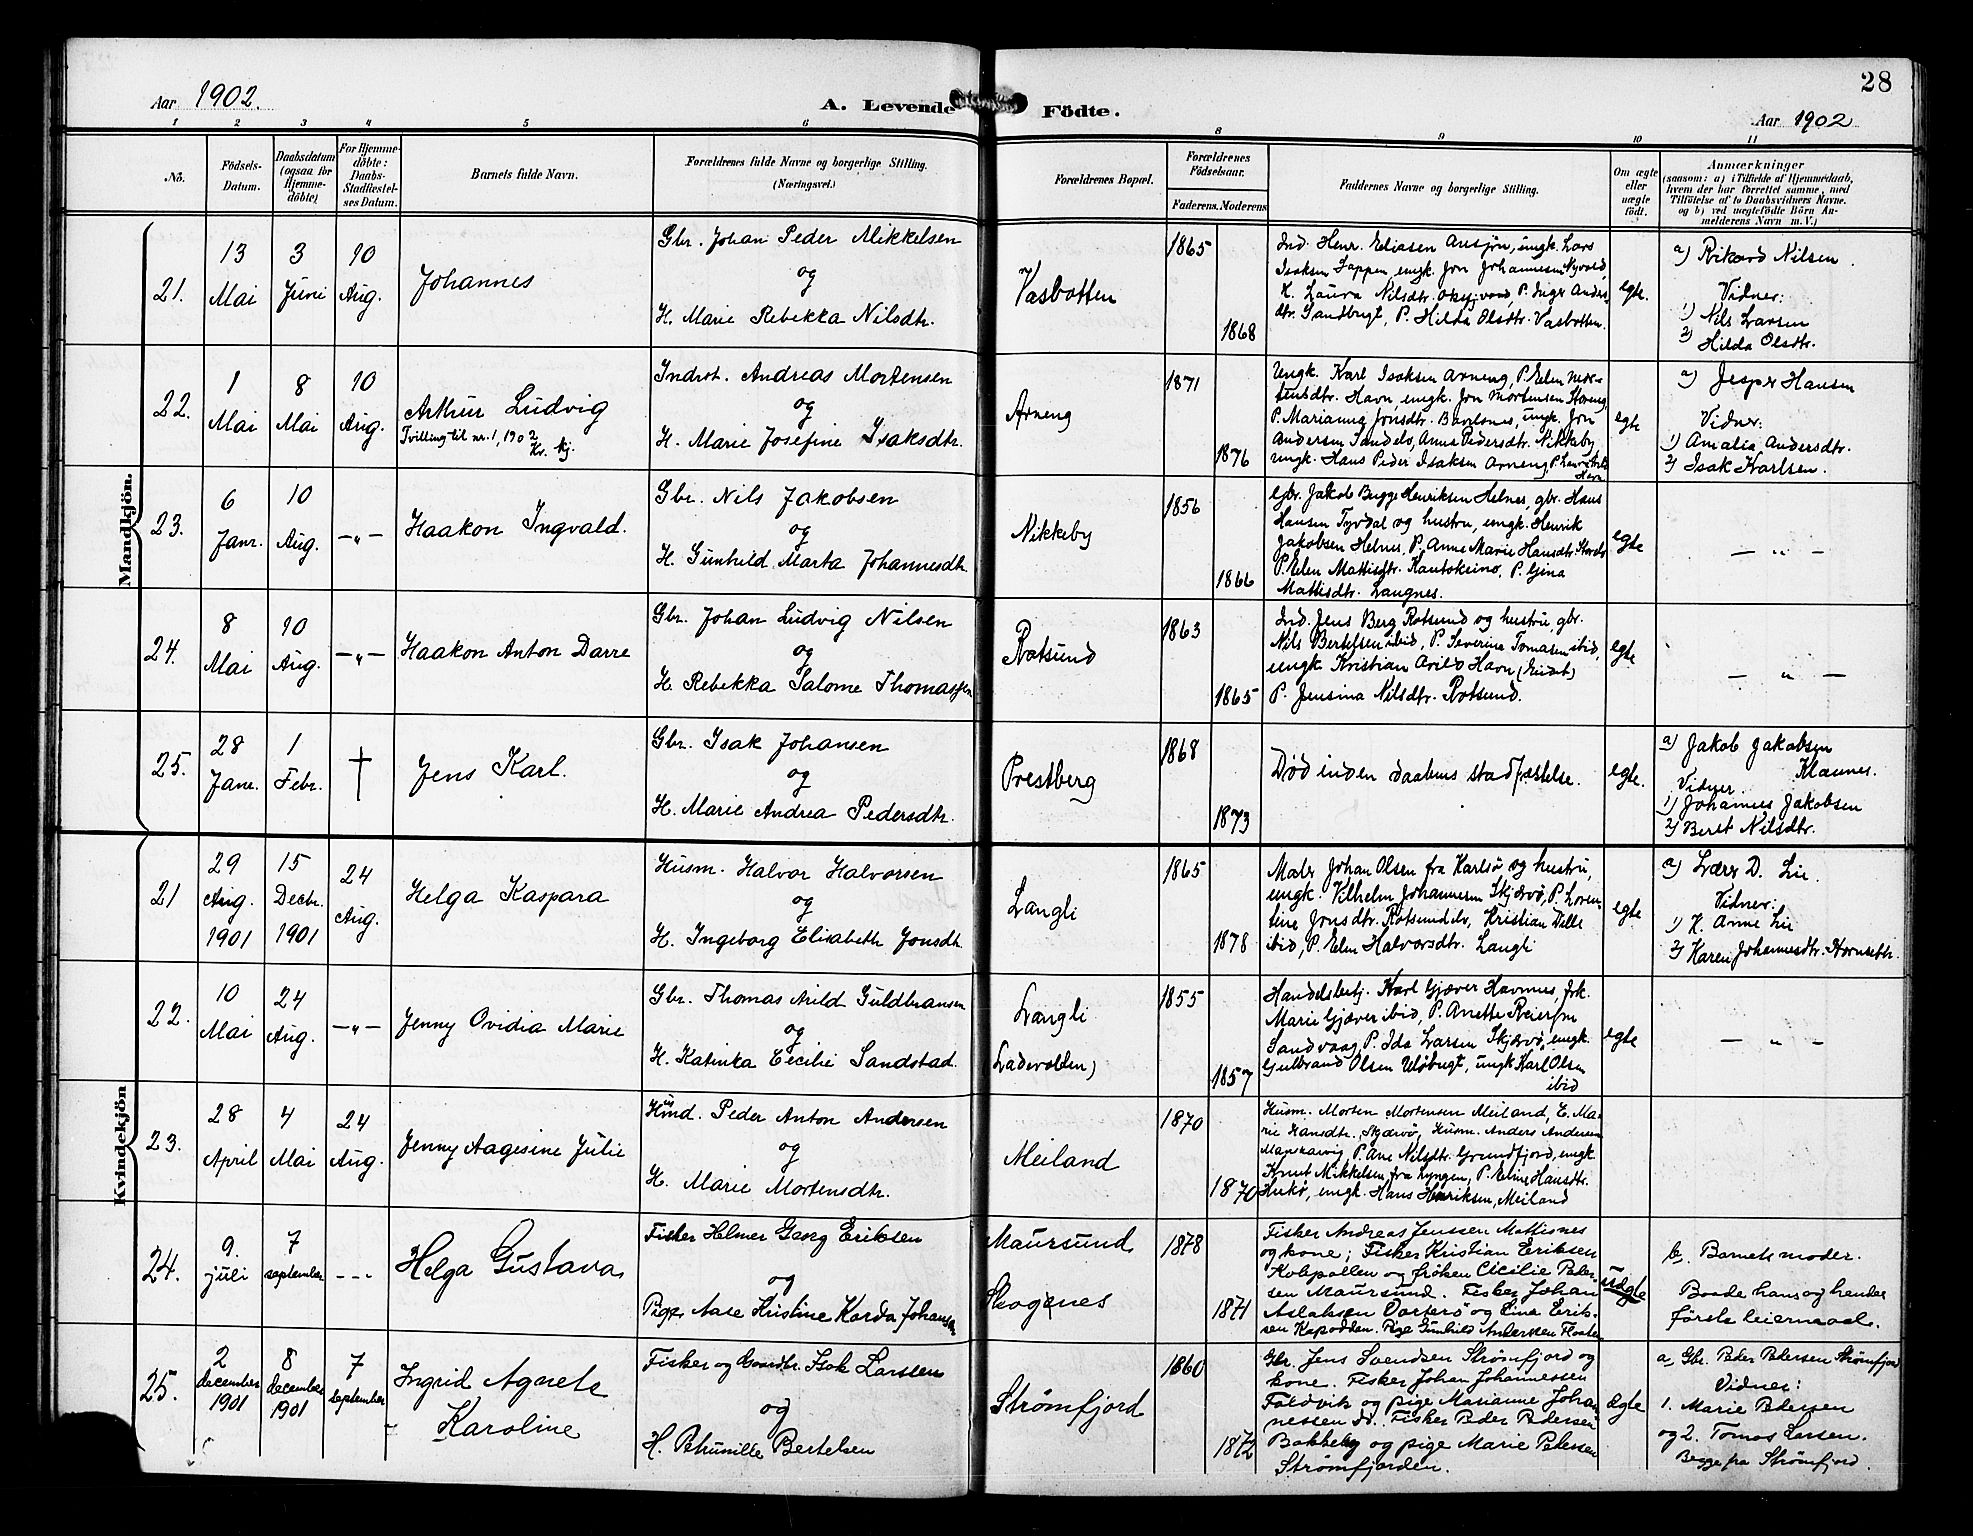 28
Aar 1902.
A. Levende Födte.
Aar 1902
1 2 3 4 5 6 8 9 10 11
No.
Födsels-
Datum.
Daabsdatum
(ogsaa for
Hjemme-
döbte)
For Hjemme-
döbte:
Daabs-
Stadfæstel-
ses Datum.
Barnets fulde Navn.
Forældrenes fulde Navne og borgerlige Stilling.
(Næringsvei.)
Forældrenes Bopæl.
Forældrenes
Födselsaar.
Faderens. Moderens.
Faddernes Navne og borgerlige Stilling.
Om ægte
eller
uægte
födt.
Anmærkninger
(saasom: a) i Tilfælde af Hjemmedaab,
hvem der har forrettet samme, med
Tilföielse af to Daabsvidners Navne.
og b) ved uægtefödte Börn An-
melderens Navn m. V.)
Mandkjön.
21.
13
Mai
3
Juni
10
Aug.
Johannes
Gbr. Johan Peder Mikkelsen
og
H. Marie Rebekka Nilsdtr.
Vasbotten
1865
1868
Ind. Henr. Eliasen Ansjøn, ungk. Lars
Isaksen Lappen, ungk. Jon Johannesen Nyvold,
K. Laura Nilsdtr. Oksfjvand, P. Inger Anders
dtr. Sandbugt, P. Hilda Olsdtr. Vasbotten.
egte.
a) Rikard Nilsen.
Vidner:
1) Nils Larsen
2) Hilda Olsdtr.
22.
1
Mai
8
Mai
10
Aug.
Arthur Ludvig
Tvilling til nr. 1, 1902
Kv. kj.
Indrot. Andreas Mortensen
og
H. Marie Josefine Isaksdtr.
Arneng
1871
1876
Ungk. Karl Isaksen Arneng, P. Elen Mor-
tensdtr. Havn, ungk. Jon Mortensen Storeng,
P. Marianna Jonsdtr. Bavelsnes, ungk. Jon
Andersen Sandelv, Anne Pedersdtr. Nikkeby
ungk. Hans Peder Isaksen Arneng
egte
a) Jesper Hansen
Vidner:
1) Amalia Andersdtr.
2) Isak Karlsen.
23.
6
Janr.
10
Aug.
— „ —
Haakon Ingvald.
Gbr. Nils Jakobsen
og
H. Gunhild Marta Johannesdtr.
Nikkeby
1856
1866
Gbr. Jakob Bugge Henriksen Helnes, gbr. Hans
Hansen Tyvdal og hustru, ungk. Henrik
Jakobsen Helnes, P. Anne Marie Hansdtr.
P. Elen Mattisdtr. Kautokeino, P. Gina
Mattisdtr. Langnes.
egte
— „ —
24.
8
Mai
10
Aug.
— „ —
Haakon Anton Darre
Gbr. Johan Ludvig Nilsen
og
H. Rebekka Salome Thomassen
Rotsund
1863
1865
Ind. Jens Berg Rotsund og hustru, gbr.
Nils Bertelsen ibid, P. Severine Tomasen ibid,
ungk. Kristian Arild Havn
P. Jensina Nilsdtr. Rotsund.
egte
— „ —
25.
28
Janr.
1
Febr.
†
Jens Karl.
Gbr. Isak Johansen
og
H. Marie Andrea Pedersdtr.
Prestberg
1868
1873
Død inden daabens stadfæstelse.
egte.
a) Jakob Jakobsen
Klaunes.
Vidner.
1) Johannes Jakobsen
2) Beret Nilsdtr.
Kvindekjön
21
29
Aug.
1901
15
Decbr.
1901
24
Aug.
Helga Kaspara
Husm. Halvor Halvorsen
og
H. Ingeborg Elisabeth Jonsdtr.
Langli
1865
1878
Maler Johan Olsen fra Karlsø og hustru,
ungk. Vilhelm Johannesen Skjærvø, P. Loren-
tine Jonsdtr. Rotsundelv, Kristian Dille
ibid, P. Elen Halvorsdtr. Langli
egte
a) Lærer D. Lie.
Vidner:
1) K. Anne Lie
2) Karen Johannesdtr. Hornsletten.
22.
10
Mai
24
Aug.
— „ —
Jenny Ovidia Marie
Gbr. Thomas Arild Guldbransen
og
H. Katinka Cecilie Sandstad.
Langli
Ladevolden)
1855
1857
Handelsbetj. Karl Gjæver Havnnes, frk.
Marie Gjæver ibid, P. Anette Reiersen
Sandvaag, P. Ida Larsen Skjærvø, ungk.
Gulbrand Olsen Uløbugt, ungk Karl Olsen
ibid
egte
— „ —
23.
28
April
4
Mai
24
Aug.
Jenny Aagesine Julie
Husm. Peder Anton Andersen
og
H. Marie Mortensdtr.
Meiland
1870
1870
Husm. Morten Mortensen Meiland, E. Ma-
rie Hansdtr. Skjærvø, Husm. Anders Andersen
P. Ane Nilsdtr. Grundfjord, ungk.
Knut Mikkelsen fra Lyngen, P. Eline Hansdtr.
ungk. Hans Henriksen, Meiland
24.
9.
juli
7
september
- - -
Helga Gustava
Fisker Helmer Georg Eriksen
og
Pige Aase Kristine Karda Johansen
Maursund
Skognes
1878
1871
Fisker Andreas Jenssen Mattisnes
og kone; Fisker Kristian Eriksen
Kolpollen og frøken Cicilie Peter-
sen Maursund. Fisker Johan
Aslaksen Vorterø og Lina Erik-
sen Kapodden. Pige Gunhild Anderssen Floaten
uægte
b, Barnets moder.
Baade hans og hendes
første leiermaal.
25.
2
december
1901
8
december
1901
7
september
Ingrid Agnete
Karoline
Fisker og Gaardbr. Isak Larssen
og
H. Petrunille Bertelsen
Strømfjord
1860
1872
Gbr. Jens Svendsen Strømfjord og
kone. Fisker Johan Johannessen
Faldvik og pige Marianne Johan-
nessen dr. Fisker Peder Pedersen
Bakkeby og pige Marie Petersen
Strømfjorden.
ægte
a, Gbr. Peder Pedersen Strømfjord
Vidner:
1. Marie Pedersen
og 2. Tomas Larsen.
Begge fra Strømfjord.